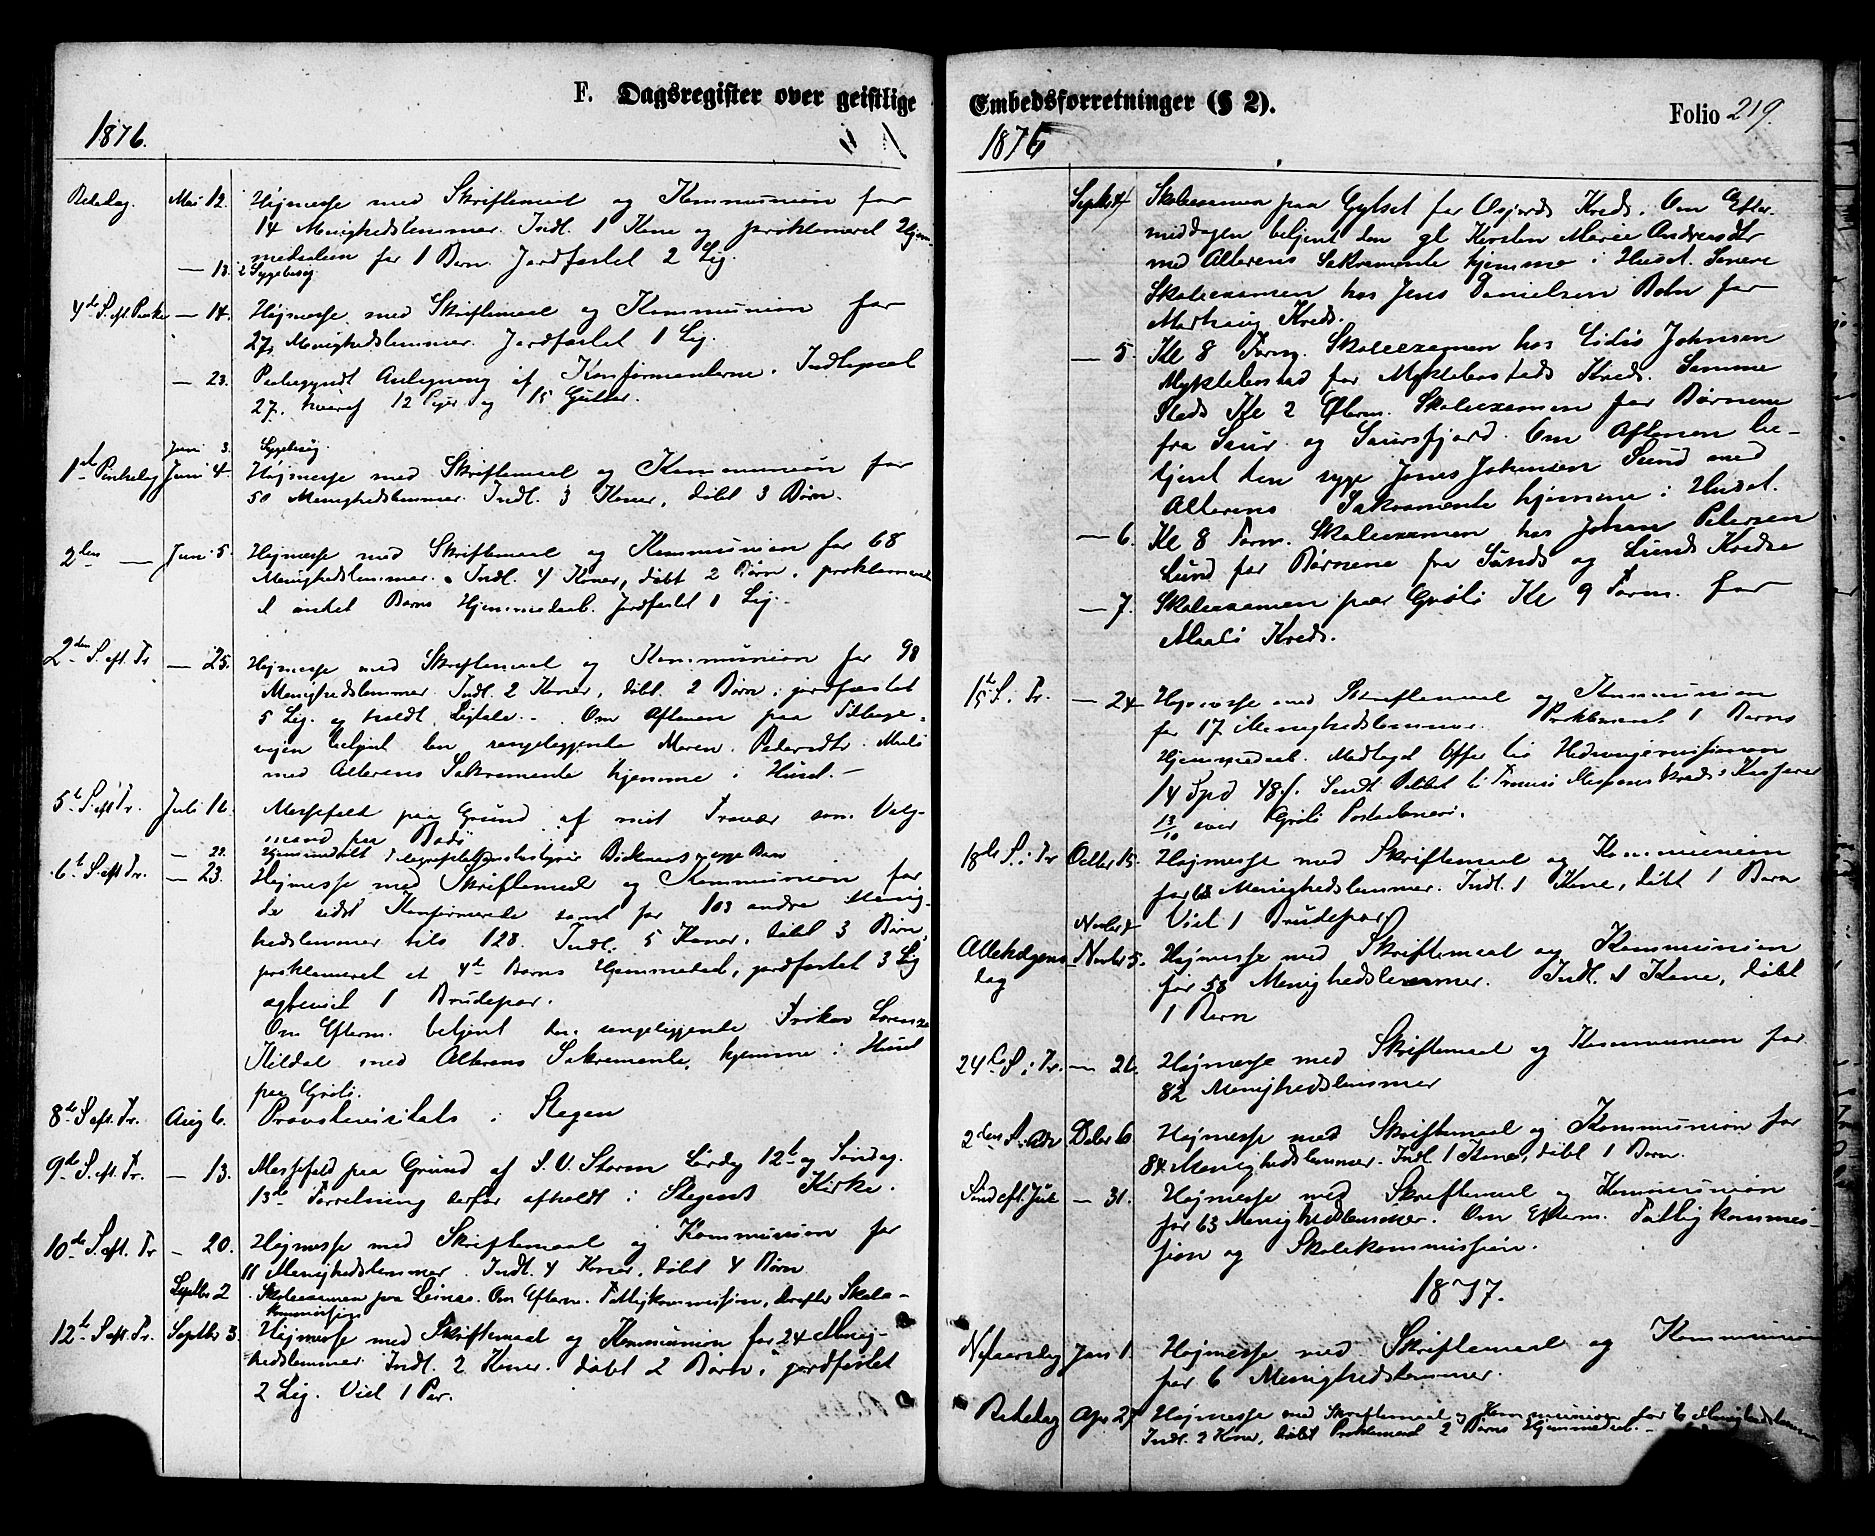 F. Dagsregister over geistlige
1876.
Bededag. Mai 12. Højmesse med Skriftemaal og Kommunion for
14 Menighedslemmer. Indl. 1 Kone og proklameret 2 Hjem-
medaaben for 1 Barn. Jordfæstet 2 Lig.
— 13. 2 Sygebesøg
4de S. eft. Paaske — 14. Højmesse med Skriftemaal og Kommunion for
27 Menighedslemmer. Jordfæstet 1 Lig.
— 23. Paabegyndt Anlegning af Konfirmanterne. Indtegnet
27, hvoraf 12 Piger og 15 Gutter.
Juni 3. Sygebesøg
1ste Pinkedag Juni 4. Højmesse med Skriftemaal og Kommunion for
50 Menighedslemmer. Indl. 3 Koner, døbt 3 Børn.
2den — Juni 5. Højmesse med Skriftemaal og Kommunion for 68
Menighedslemmer. Indl. 4 Koner, døbt 2 Børn, proklameret
et andet Barns Hjemmedaab. Jordfæstet 1 Lig.
2den S. eft. Tr — 25. Højmesse med Skriftemaal og Kommunion for 98
Menighedslemmer. Indl. 2 Koner, døbt 2 Børn, jordfæstet
5 Lig og holdt Ligtale. Om Aftenen paa Tilbage-
vejen betjent den sengeliggende Maren Pedersdtr.
med Alterens Sakramente hjemme i Huset.
5te S. eft Tr. Juli 16. Messefald paa Grund af mit Fravær som Valg-
mand paa Bodø
— 22. Hjemmedøbt Telegrafbestyrer syge Barn
6te S. eft Tr. — 23. Højmesse med Skriftemaal og Kommunion for
de sidst Konfirmerede samt for 103 andre Menig-
hedslemmer tils. 128. Indl. 5 Koner, døbt 3 Børn,
proklameret et 4de Barns Hjemmedaab, jordfæstet 3 Lig
og viet 1 Brudepar.
Om Efterm. betjent den sengeliggende Frøken
Kildal med Alterens Sakramente, hjemme i Huset
paa Grøtø.
8de S eft. Tr. Aug 6. Provstevisitats i Stegen
9de S. eft. Tr. — 13. Messefald paa Grund af S.V. Storm Lørdag 12te og Søndag
13de Forretning derfor afholdt i Stegens Kirke.
10de S. eft. Tr — 20. Højmesse med Skriftemaal og Kommunion for
11 Menighedslemmer. Indl. 4 Koner, døbt 4 Børn
Septbr 2 Skoleexamen paa Leines. Om Efterm. Fattigkommission, derefter Skole-
kommission
12te S. eft. Tr. Septbr 3. Højmesse med Skriftemaal og Kommunion for 24 Menig-
hedslemmer. Indl. 2 Koner, døbt 2 Børn, jordfæstet
2 Lig. Viet 1 Par.
Embedsforretninger (§ 2).
Folio 219.
1876
Septbr 4 Skoleexamen paa Gylset for Kreds. Om Efter-
middagen betjent den gl. Kirsten Marie Andreasdtr
med Alterens Sakramente hjemme i Huset. Senere
Skoleexamen hos Jens Danielsen Boln for
Kreds.
— 5. Kl 8 Form. Skoleexamen hos Johnsen
Myklebostad for Myklebostads Kreds. Samme
Steds Kl 2 Efterm. Skoleexamen for Børnene
fra Saur og Saursfjord. Om Aftenen be-
tjent den syge Jonas Johansen Sund med
Alterens Sakramente hjemme i Huset.
— 6. Kl 8 Form. Skoleexamen hos Johan Petersen
Lund for Børnene fra Sunds og Lunds Kredse
— 7. Skoleexamen paa Grøtø Kl 9 Form. for
Maalø Kreds.
15de S. i Tr. — 24. Højmesse med Skriftemaal og Kommunion
for 17 Menighedslemmer. Proklameret 1 Barns
Hjemmedaab. Modtaget Offer til Hedningemissionen
14 Spd 48 ſ. Sendt Beløbet til Tromsø Missions Kreds's Kasserer
13/10 over Grøtø Postaabneri.
18de S. i Tr Octbr 15. Højmesse med Skriftemaal og Kommunion
for 68 Menighedslemmer. Indl. 1 Kone, døbt 1 Barn
Novbr Viet 1 Brudepar.
Allehelgens-
dag Novbr 5. Højmesse med Skriftemaal og Kommunion
for 58 Menighedslemmer. Indl. 1 Kone, døbt
1 Barn
24de S. i Tr. — 26. Højmesse med Skriftemaal og Kommunion for
82 Menighedslemmer
2den S. i Adv Decbr Højmesse med Skriftemaal og Kommunion for
84 Menighedslemmer. Indl 1 Kone, døbt 1 Barn.
Sønd eft. Jul — 31. Højmesse med Skriftemaal og Kommunion
for 63 Menighedslemmer. Om Efterm. Fattigkommis-
sion og Skolekommission.
1877.
Nytaarsdag Jan 1. Højmesse med Skriftemaal og Kommunion
for 6 Menighedslemmer.
Bededag Apr. 27 Højmesse med Skriftemaal og Kommunion for 6 Menighedslemmer
Indl. 2 Koner, døbt Proklameret 2 Børns Hjemmedaab.